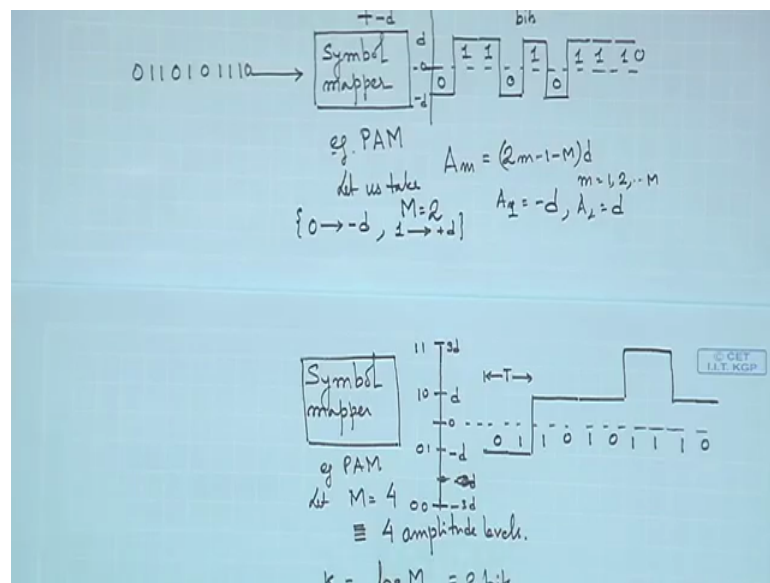 +-d
bih
0110101110
Symbol
mapper
d
0
-d
0 1 1 0 1 0 1 1 1 0
eg. PAM
Am = (2m-1-M)d
m=1,2,..M
Let us take
M=2
A1 = -d, A2 = d
{0→-d, 1→+d}
Symbol
mapper
11 3d
10 d
0
01 -d
00 -3d
T
0 1 1 0 1 0 1 1 1 0
© CET
I.I.T. KGP
eg PAM
Let M=4
≡ 4 amplitude levels.